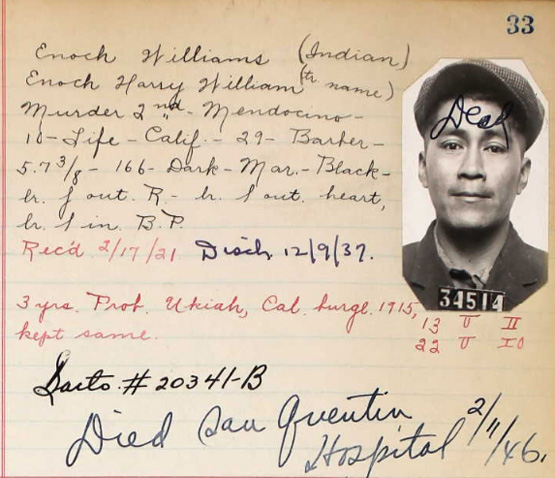 33
Enoch Williams (Indian)
Enoch Harry William (tr name)
Murder 2nd - Mendocino -
10 - Life - Calif. - 29 - Barber -
5.7 3/8 - 166 - Dark - Mar. - Black -
lr. f out. R. - lr. f out. heart,
lr. f in. B.P.
Rec'd 2/17/21 Disch. 12/9/37.
Dead
34514
3 yrs. Prob. Ukiah, Cal. burge. 1915,
kept same.
13 U II
22 U IO
Sacto. # 20341-B
Died San Quentin
Hospital 2/11/46.